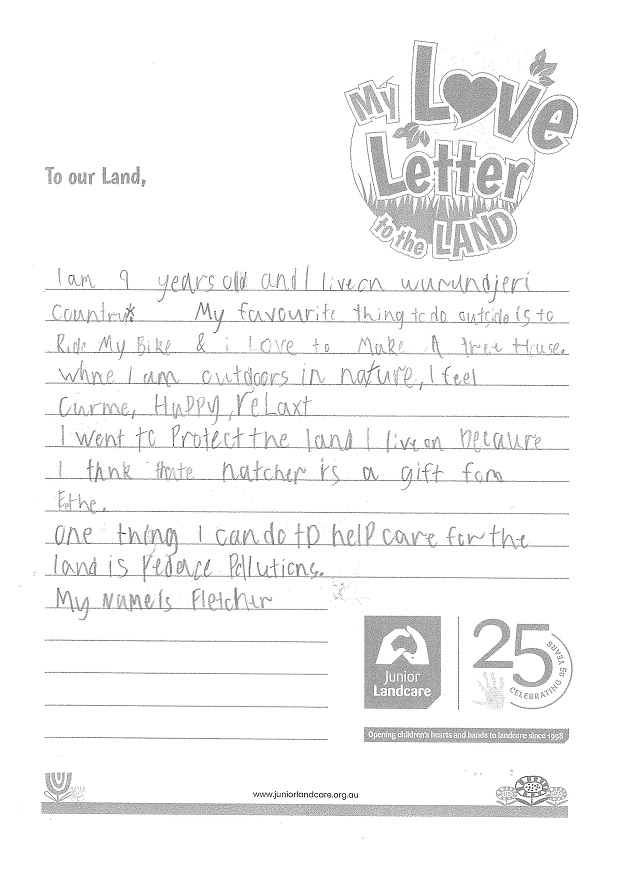 My Love
Letter
to the LAND
To our Land,
I am 9 years old and I live on wurundjeri
Country. My favourite thing to do outside is to
Ride My Bike & i Love to Make A tree House.
whne I am outdoors in nature, I feel
Curme, Huppy, reLaxt
I went to Protect the land I live on becaure
I thnk thate natcher is a gift fom
Eethe.
one thing I can do to help care for the
land is Pederce Pollutions.
My Name is Fletcher
Junior
Landcare
25
CELEBRATING 25 YEARS
Opening children's hearts and hands to landcare since 1998
www.juniorlandcare.org.au